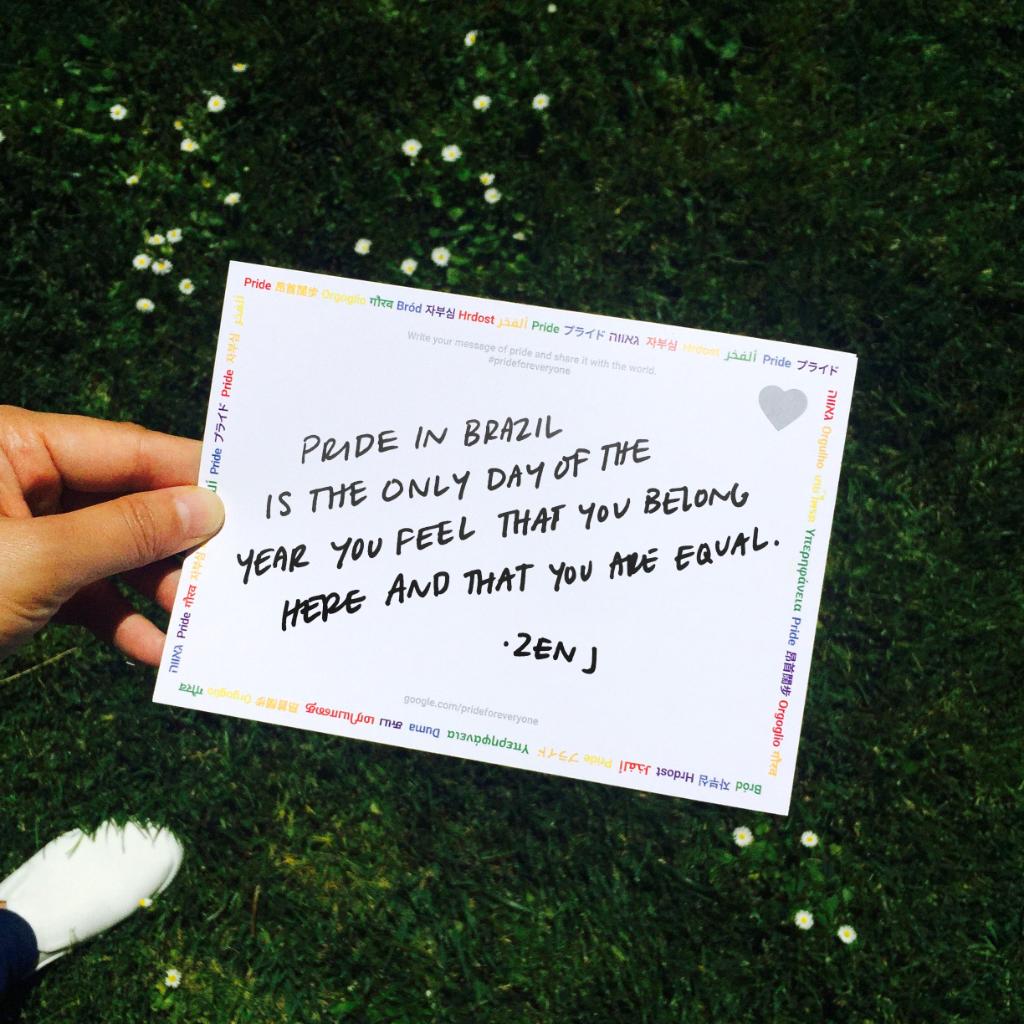 Pride 昂首闊步 Orgoglio गौरव Bród 자부심 Hrdost ألفخر Pride プライド גאווה 자부심 Hrdost ألفخر Pride プライド
Write your message of pride and share it with the world.
#prideforeveryone
PRIDE IN BRAZIL
IS THE ONLY DAY OF THE
YEAR YOU FEEL THAT YOU BELONG
HERE AND THAT YOU ARE EQUAL.
·ZEN J
google.com/prideforeveryone
גאווה Orgulho Υπερηφάνεια Pride 昂首闊步 Orgoglio गौरव
Bród 자부심 Hrdost ألفخر Pride プライド Υπερηφάνεια Duma 昂首闊步 Orgoglio गौरव
גאווה Pride गौरव 자부심 Pride プライド Pride 자부심 ألفخر